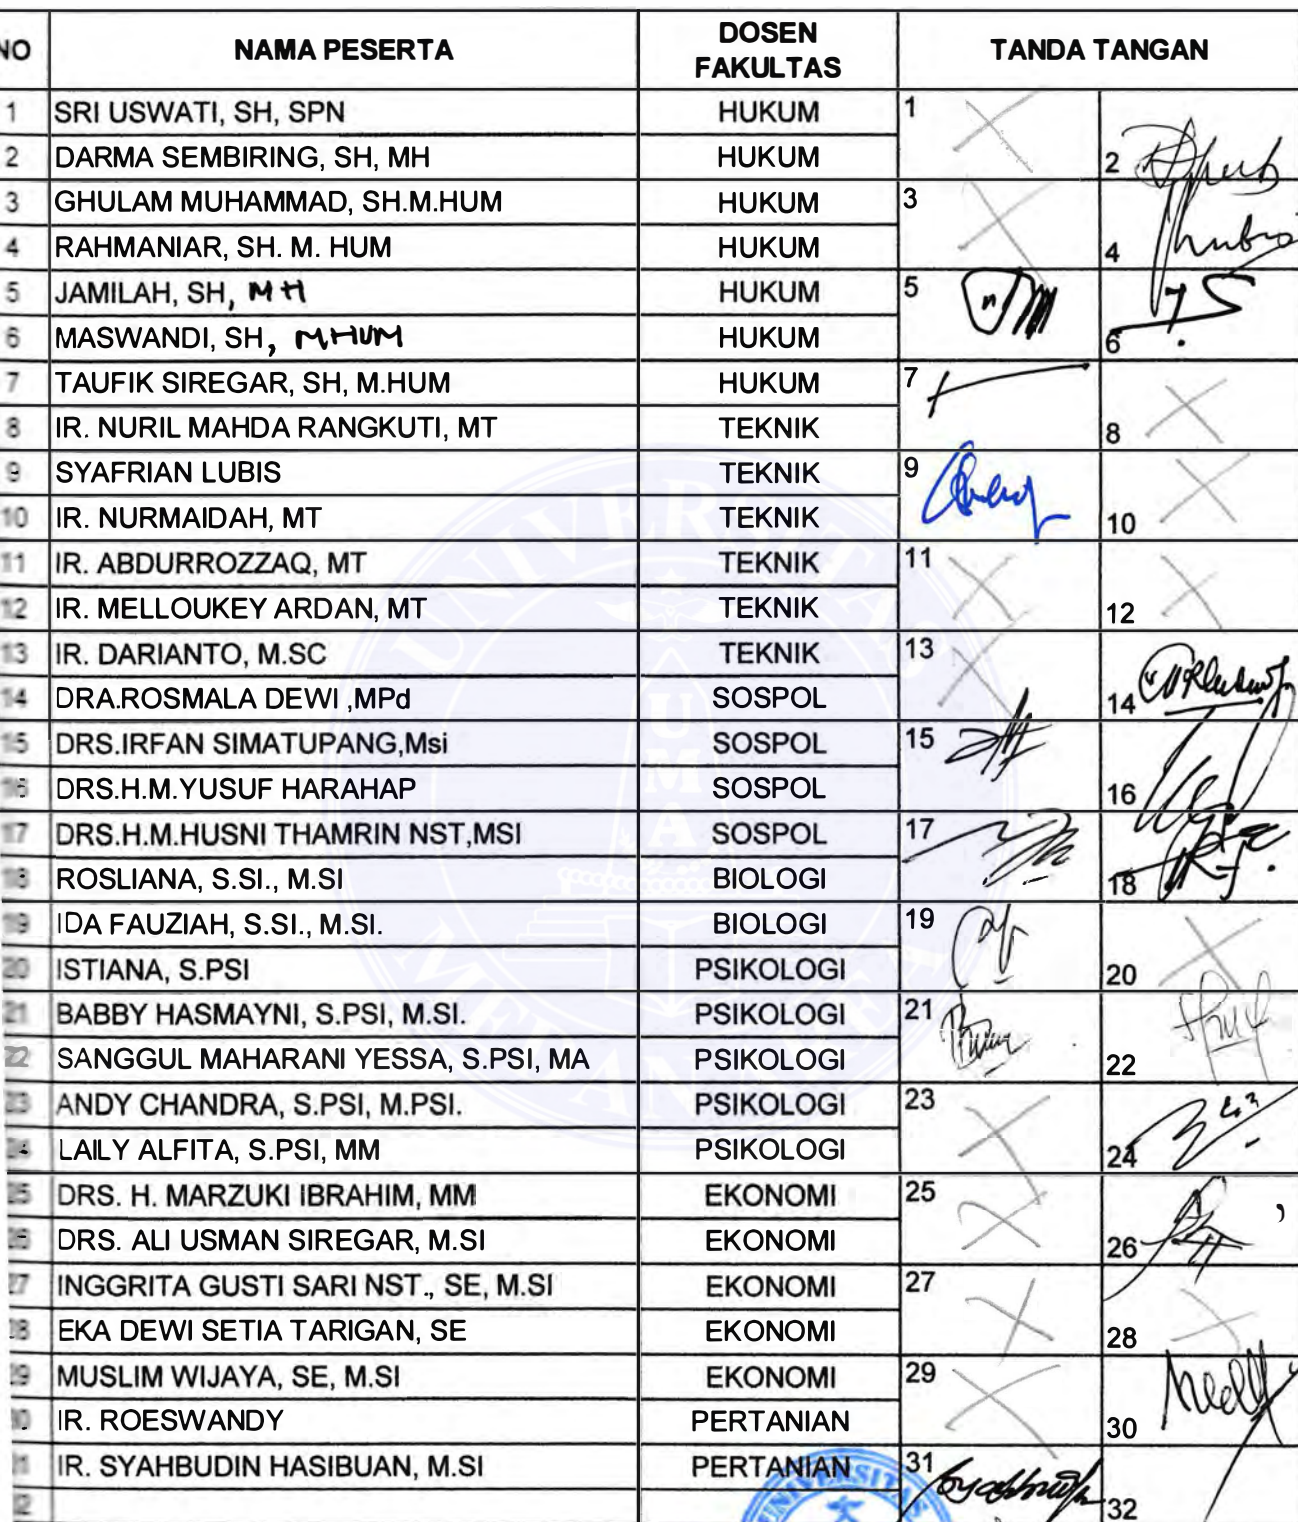 NO NAMA PESERTA DOSEN FAKULTAS TANDA TANGAN
1 SRI USWATI, SH, SPN HUKUM 1
2 DARMA SEMBIRING, SH, MH HUKUM 2
3 GHULAM MUHAMMAD, SH.M.HUM HUKUM 3
4 RAHMANIAR, SH. M. HUM HUKUM 4
5 JAMILAH, SH, MH HUKUM 5
6 MASWANDI, SH, MHUM HUKUM 6
7 TAUFIK SIREGAR, SH, M.HUM HUKUM 7
8 IR. NURIL MAHDA RANGKUTI, MT TEKNIK 8
9 SYAFRIAN LUBIS TEKNIK 9
10 IR. NURMAIDAH, MT TEKNIK 10
11 IR. ABDURROZZAQ, MT TEKNIK 11
12 IR. MELLOUKEY ARDAN, MT TEKNIK 12
13 IR. DARIANTO, M.SC TEKNIK 13
14 DRA.ROSMALA DEWI ,MPd SOSPOL 14
15 DRS.IRFAN SIMATUPANG,Msi SOSPOL 15
16 DRS.H.M.YUSUF HARAHAP SOSPOL 16
17 DRS.H.M.HUSNI THAMRIN NST,MSI SOSPOL 17
18 ROSLIANA, S.SI., M.SI BIOLOGI 18
19 IDA FAUZIAH, S.SI., M.SI. BIOLOGI 19
20 ISTIANA, S.PSI PSIKOLOGI 20
21 BABBY HASMAYNI, S.PSI, M.SI. PSIKOLOGI 21
22 SANGGUL MAHARANI YESSA, S.PSI, MA PSIKOLOGI 22
23 ANDY CHANDRA, S.PSI, M.PSI. PSIKOLOGI 23
24 LAILY ALFITA, S.PSI, MM PSIKOLOGI 24
25 DRS. H. MARZUKI IBRAHIM, MM EKONOMI 25
26 DRS. ALI USMAN SIREGAR, M.SI EKONOMI 26
27 INGGRITA GUSTI SARI NST., SE, M.SI EKONOMI 27
28 EKA DEWI SETIA TARIGAN, SE EKONOMI 28
29 MUSLIM WIJAYA, SE, M.SI EKONOMI 29
30 IR. ROESWANDY PERTANIAN 30
31 IR. SYAHBUDIN HASIBUAN, M.SI PERTANIAN 31
32 32
UNIVERSITAS MEDAN AREA
UMA
UNIVERSITAS